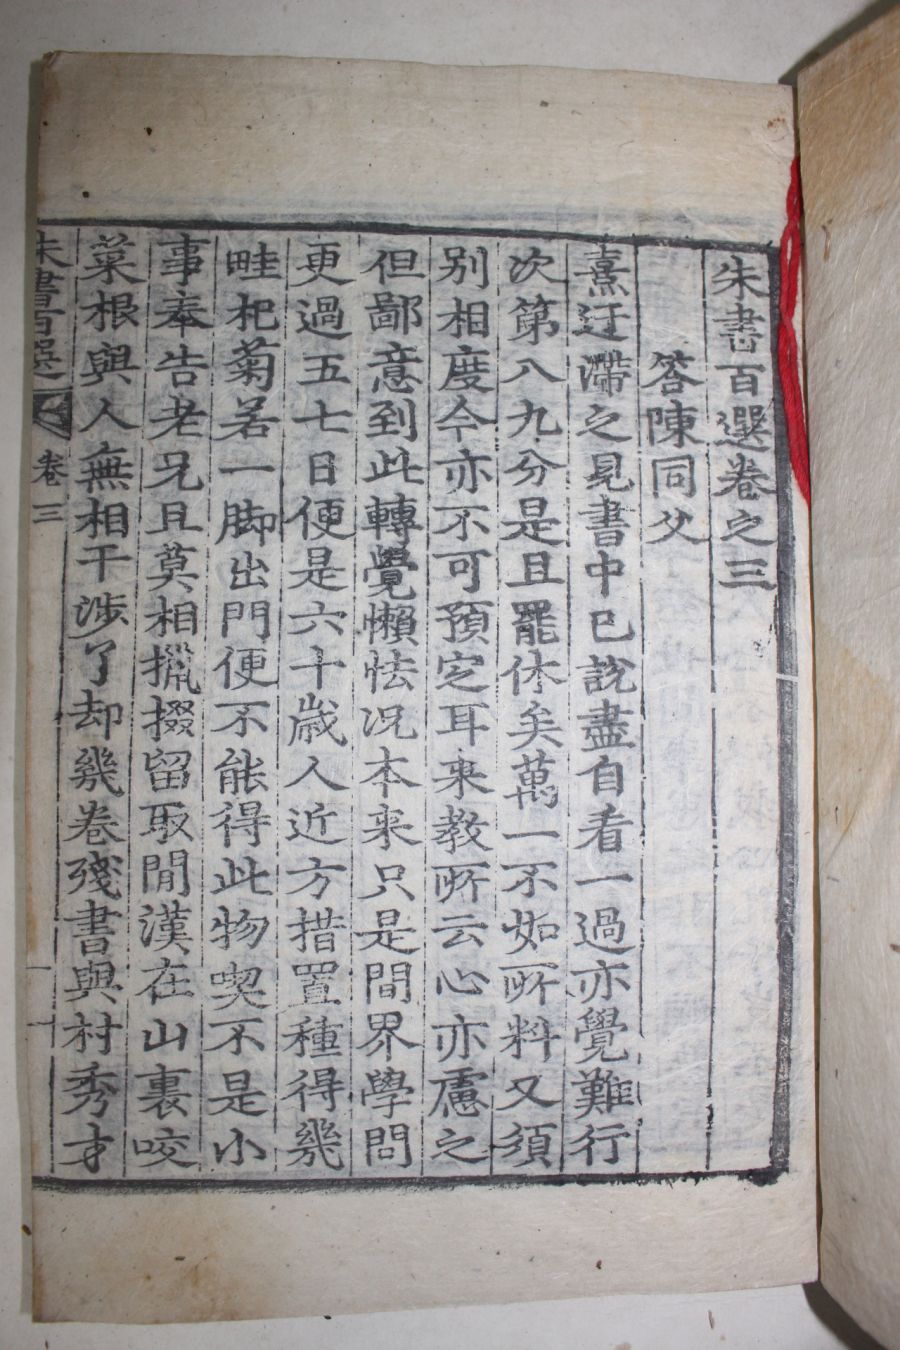 朱書百選卷之三
答陳同父
熹迂滯之見書中已說盡自看一過亦覺難行
次第八九分是且罷休矣萬一不如所料又須
別相度今亦不可預定耳来教所云心亦慮之
但鄙意到此轉覺懶怯况本来只是間界學問
更過五七日便是六十歲人近方措置種得幾
畦杞菊若一脚出門便不能得此物喫不是小
事奉告老兄且莫相攛掇留取閒漢在山裏咬
菜根與人無相干涉了却幾卷殘書與村秀才
朱書百選
卷三